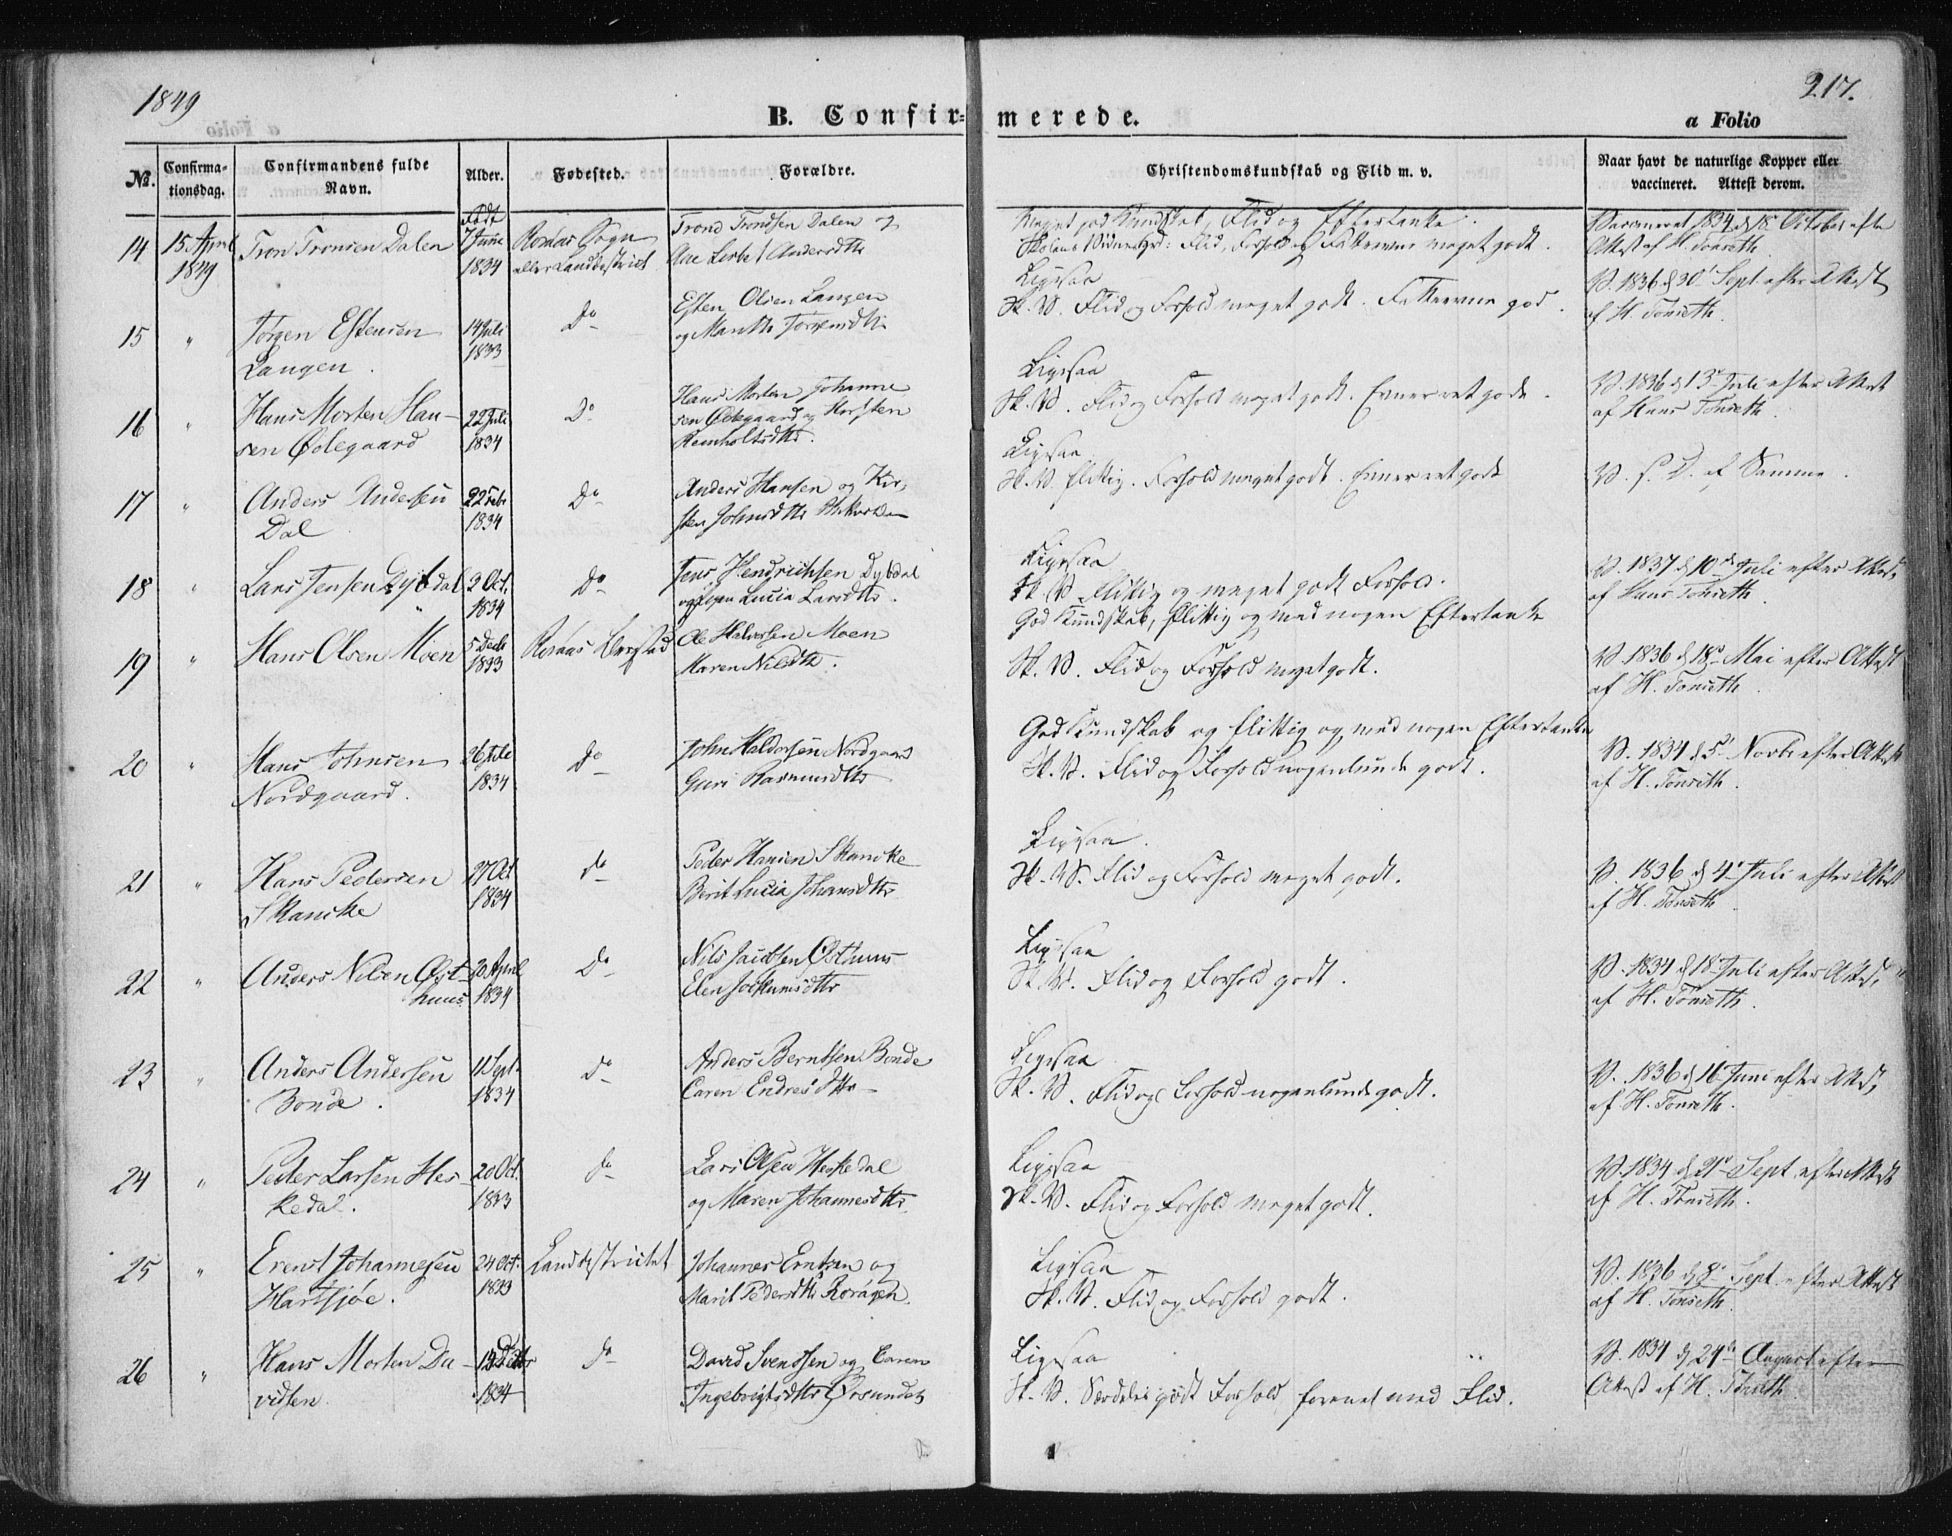 1849
217.
B. Confirmerede.
a Folio
No.
Confirmationsdag.
Confirmandens fulde Navn.
Alder.
Fødested.
Forældre.
Christendomskundskab og Flid m. v.
Naar havt de naturlige Kopper eller vaccineret. Attest derom.
Født
14 15 April 1849 Tron Tronsen Dalen 7 Juni 1834 Roraas Sogn eller Landdistrict
Trond Trondsen Dalen og
Meget god Kundskab, Flid og Eftertanke.
Flid, Forhold og Fatteevne meget godt.
Vaccineret 1834 d 18 October efter
Attest af H. Tonseth
15 " Jørgen Estensen Langen. 14 Juli 1833 Do
Esten Olsen Langen
og Marithe
Ligesaa
Sk. V. Flid og Forhold meget godt. Fatteevne god.
V. 1836 d 30 Sept. efter Attest
af H. Tonseth.
16 " Hans Morten Hansen Ødegaard 22 Juli 1834 Do
Hans Morten Johannesen Ødegaard og Kirsten
Reinholtsdtr.
Ligesaa
Sk. V. Flid og Forhold meget godt. Evner ret gode.
V. 1836 d 13 Juli efter Attest
af Hans Tonseth.
17 " Anders Andersen Dal 22 1834 Do
Anders Hansen og Kirsten Johnsdtr
Ligesaa
Sk. V. flittig. Forhold meget godt. Evner ret gode
V. s. D. af Samme.
18 " Lars Jensen Dybdal 2 Oct. 1834 Do
Jens Hendrichsen Dybdal
og Lucia Larsdtr.
Ligesaa
Sk. V. Flittig og meget godt Forhold.
V. 1837 d 10 Juli efter Attest
af Hans Tonseth.
19 " Hans Olsen Moen 5 Decbr 1833 Roraas Bergstad
Ole Halvorsen Moen
Maren Nilsdtr.
God Kundskab, flittig og med nogen Eftertanke
Sk. V. Flid og Forhold meget godt.
V. 1836 d 18 Mai efter Attest
af H. Tonseth.
20 " Hans Johnsen Nordgaard. 26 1834 Do
John Haldorsen Nordgaard
Guri Rasmusdtr
God Kundskab og flittig og med nogen Eftertanke
Sk. V. Flid og Forhold nogenlunde godt.
V. 1834 d 5 Novbr efter Attest
af H. Tonseth.
21 " Hans Pedersen Skancke 27 Oct 1834 Do
Peder Hansen Skancke
Berit Lucia Johansdtr
Ligesaa.
Sk. V. Flid og Forhold meget godt.
V. 1836 d 4 Juli efter Attest
af H. Tonseth.
22 " Anders Nilsen Østhuus 20 April 1834 Do
Nils Østhuus
Elen
Ligesaa
Sk. V. Flid og Forhold godt.
V. 1834 d 18 Juli efter Attest
af H. Tonseth.
23 " Anders Andersen Bonde. 11 Sept. 1834 Do
Anders Berntsen Bonde
Caren Endresdtr
Ligesaa
Sk. V. Flid og Forhold nogenlunde godt.
V. 1836 d 16 Juni efter Attest
af H. Tonseth.
24 " Peder Larsen Heskedal. 20 Oct. 1833 Do
Lars Olsen Heskedal
og Maren Johannesdtr.
Ligesaa
Sk. V. Flid og Forhold meget godt.
V. 1834 d 21 Sept efter Attest
af H. Tonseth.
25 " Erenst Johannesen Hartsjøe. 24 Oct. 1833 Landdistrictet
Johannes Erntsen og
Marit Pedersdtr
Ligesaa
Sk. V. Flid og Forhold godt.
V. 1836 d 8 Sept. efter Attest
af H. Tonseth.
26 " Hans Morten Davidsen. 1834 Do
David Svendsen og Caren
Ingebrigtsdtr Ørsundet
Ligesaa
Sk. V. Særdeles godt Forhold forenet med Flid.
V. 1834 d 24 August efter
Attest af H. Tonseth